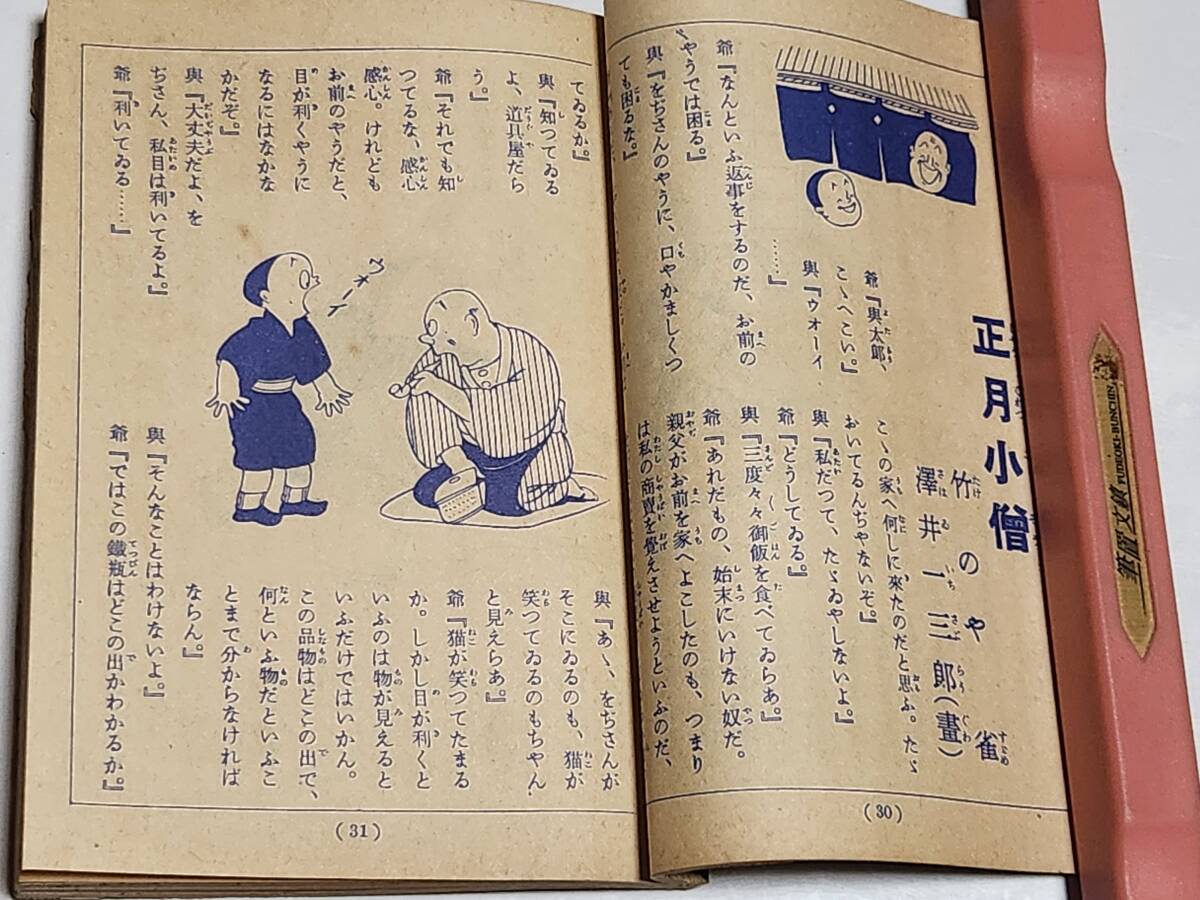 正月小僧
竹のや雀
澤井一三郎(畫)
爺『與太郎、
こゝへこい。』
與『ウォーイ
……』
爺『なんといふ返事をするのだ、お前の
やうでは困る。』
與『をぢさんのやうに、口やかましくつ
ても困るな。』
こゝの家へ何しに來たのだと思ふ。たゞ
おいてるんぢやないぞ。』
與『私だつて、たゞゐやしないよ。』
爺『どうしてゐる。』
與『三度々々御飯を食べてゐらあ。』
爺『あれだもの、始末にいけない奴だ。
親父がお前を家へよこしたのも、つまり
は私の商賣を覺えさせようといふのだ、
(30)
てゐるか。』
與『知つてゐる
よ、道具屋だら
う。』
爺『それでも知
つてるな、感心
感心。けれども
お前のやうだと、
目が利くやうに
なるにはなかな
かだぞ。』
與『大丈夫だよ、を
ぢさん、私目は利いてるよ。』
爺『利いてゐる……』
ウォーイ
與『あゝ、をぢさんが
そこにゐるのも、猫が
笑つてゐるのもちやん
と見えらあ。』
爺『猫が笑つてたまる
か。しかし目が利くと
いふのは物が見えると
いふだけではいかん。
この品物はどこの出で、
何といふ物だといふこ
とまで分からなければ
ならん。』
與『そんなことはわけないよ。』
爺『ではこの鐵瓶はどこの出かわかるか。』
(31)
筆置文鎮
FUDEOKI-BUNCHIN